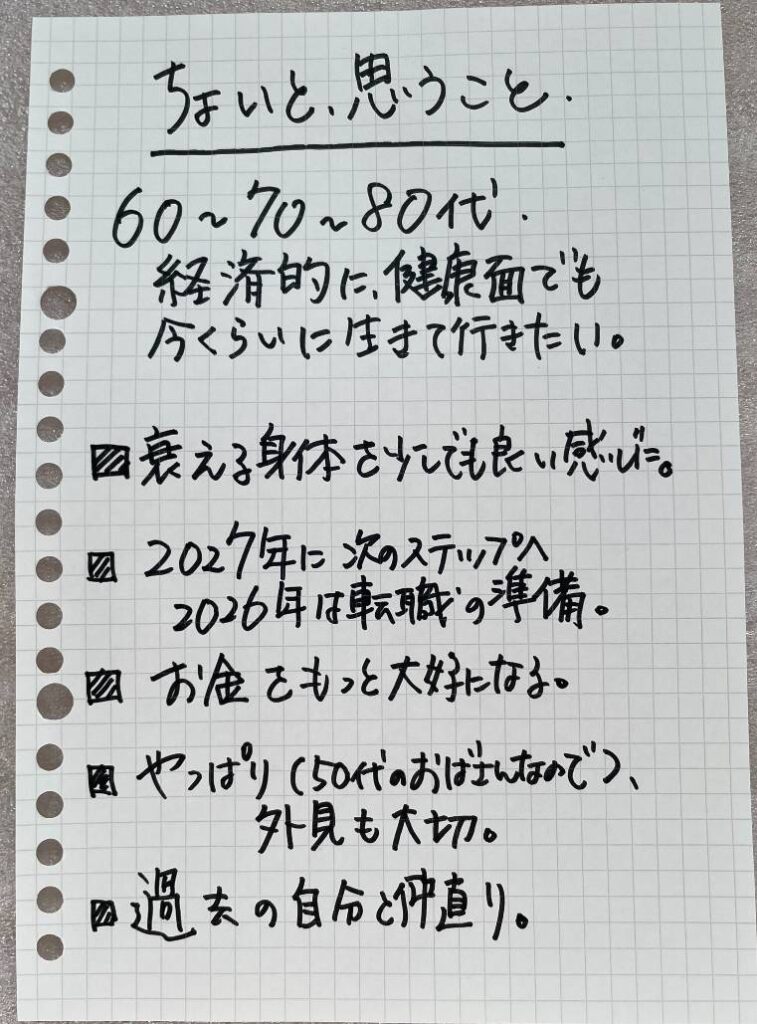 ちょいと、思うこと.
60~70~80代.
経済的に、健康面でも
今くらいに生きて行きたい。
衰える身体を少しでも良い感じに。
2027年に次のステップへ
2026年は転職の準備。
お金をもっと大好になる。
やっぱり(50代のおばさんなので)、
外見も大切。
過去の自分と仲直り。